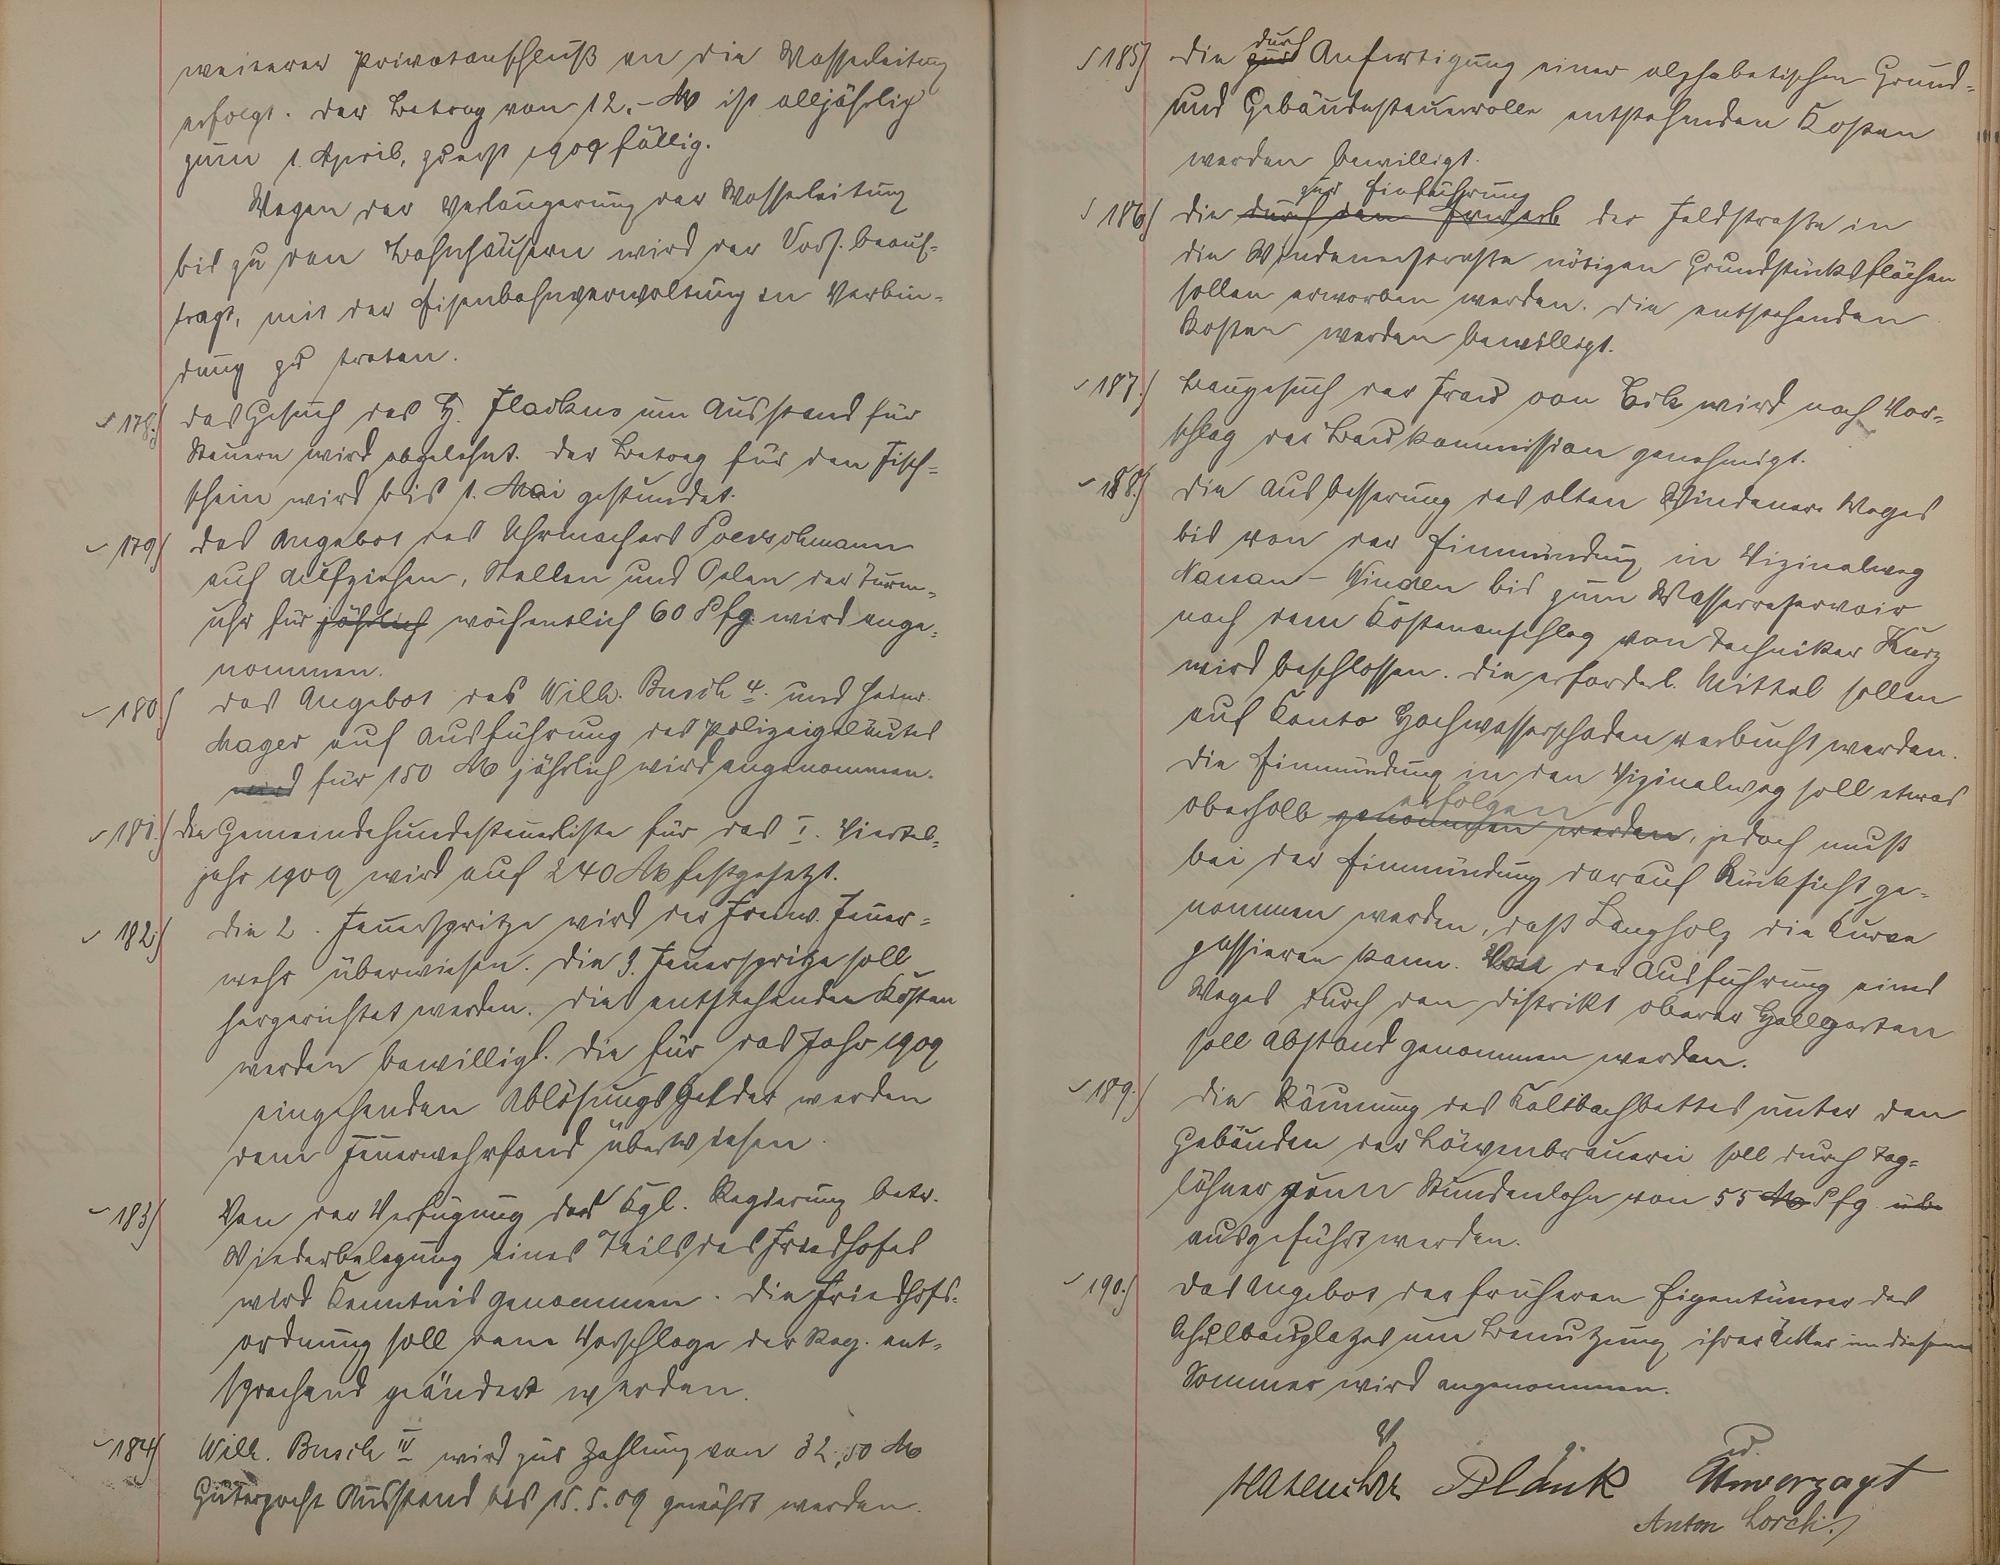 weiterer Privatanschluß an die Wasserleitung
erfolgt. Der Betrag von 12.- M ist alljährlich
zum 1. April, zuerst 1909 fällig.
Wegen der Verlängerung der Wasserleitung
bis zu den Bahnhäusern wird der Vors. beauf-
tragt, mit der Eisenbahnverwaltung in Verbin-
dung zu treten.
178.) Das Gesuch des H. Flackus um Ausstand für
Steuern wird abgelehnt. Der Betrag für den Fisch-
schein wird bis 1. Mai gestundet.
179) Das Angebot des Uhrmachers
auf Aufziehen, Stellen und Oelen der Turm-
uhr für jährlich wöchentlich 60 Pfg. wird ange-
nommen.
180.) Das Angebot des Wilh. Busch 4. und Heinr.
Mager auf Ausführung des Polizeigeläutes
wird für 150 M jährlich wird angenommen.
181.) Die Gemeindehundesteuerliste für das I. Viertel-
jahr 1909 wird auf 240 M festgesetzt.
182.) Die 2. Feuerspritze wird der Freiw. Feuer-
wehr überwiesen. Die 3. Feuerspritze soll
hergerichtet werden. Die entstehenden Kosten
werden bewilligt. Die für das Jahr 1909
eingehenden Ablösungsgelder werden
dem Feuerwehrfond überwiesen.
183) Von der Verfügung der Kgl. Regierung betr.
Wiederbelegung eines Teils des Friedhofes
wird Kenntnis genommen. Die Friedhofs-
ordnung soll dem Vorschlage der Reg. ent-
sprechend geändert werden.
184) Wilh. Busch IV wird zur Zahlung von 32,50 M
Güterpacht Ausstand bis 15.5.09 gewährt werden.
§ 185) Die zur durch Anfertigung einer alphabetischen Grund-
und Gebäudesteuerrolle entstehenden Kosten
werden bewilligt.
zur Einführung
§ 186) Die durch den Erwerb der Feldstraße in
die Windenerstraße nötigen Grundstücksflächen
sollen erworben werden. Die entstehenden
Kosten werden bewilligt.
187.) Baugesuch der Frau von Eck wird nach Vor-
schlag der Baukommission genehmigt.
188.) Die Ausbesserung des alten Windener Weges
bis von der Einmündung in Vizinalweg
Nassau - Winden bis zum Wasserreservoir
nach dem Kostenanschlag von Techniker Kurz
wird beschlossen. Die erforderl. Mittel sollen
auf Konto Hochwasserschaden verbucht werden.
Die Einmündung in den Vizinalweg soll etwas
erfolgen
oberhalb genommen werden, jedoch muß
bei der Einmündung darauf Rücksicht ge-
nommen werden, daß Langholz die Kurve
passieren kann. Von der Ausführung eines
Weges durch den Distrikt oberer Hallgarten
soll Abstand genommen werden.
189.) Die Räumung des Kaltbachbettes unter den
Gebäuden der Löwenbrauerei soll durch Tag-
löhner zum Stundenlohn von 55 M Pfg.
ausgeführt werden.
190.) Das Angebot der früheren Eigentümer des
Schulbauplatzes um Benutzung ihrer Äcker in diesem
Sommer wird angenommen.
Hasenclever Blänk Unverzagt
Anton Lorch.